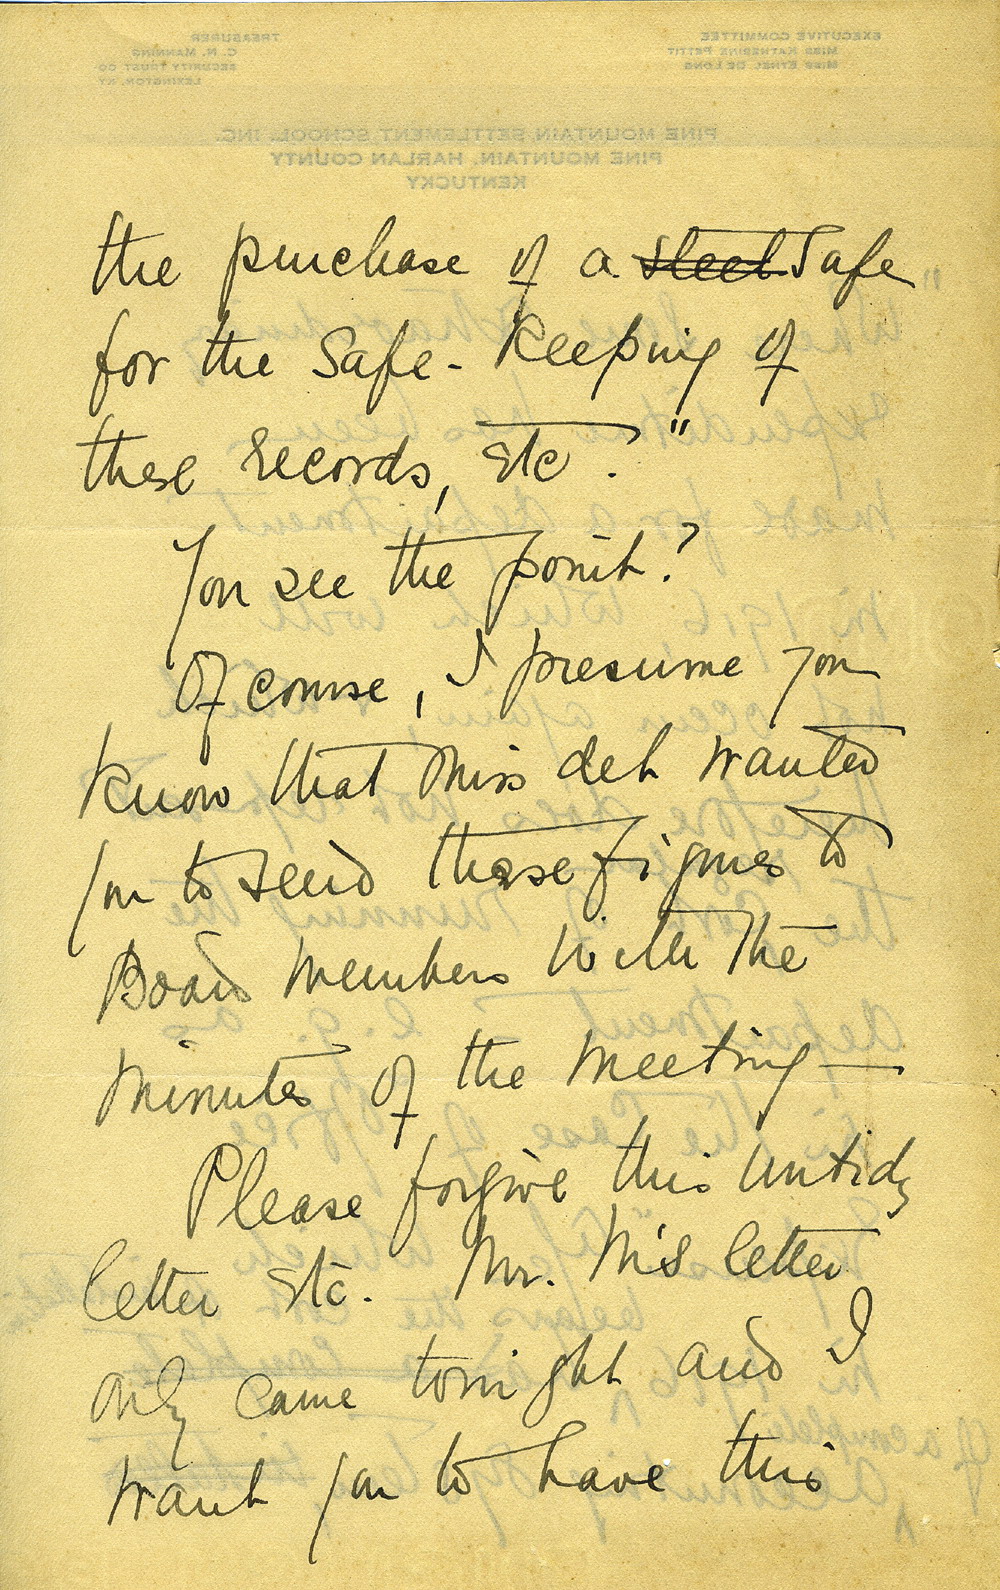 the purchase of a steel Safe
for the Safe-Keeping of
these records, etc."
You see the point?
Of course, I presume you
know that Miss deL wanted
you to send these figures to
Board members with the
minutes of the meeting —
Please forgive this untidy
letter etc. Mr. M's letter
only came tonight and I
want you to have this
EXECUTIVE COMMITTEE
MISS KATHERINE PETTIT
MISS ETHEL DE LONG
TREASURER
C. N. MANNING
SECURITY TRUST CO
LEXINGTON, KY.
PINE MOUNTAIN SETTLEMENT SCHOOL, INC.
PINE MOUNTAIN, HARLAN COUNTY
KENTUCKY